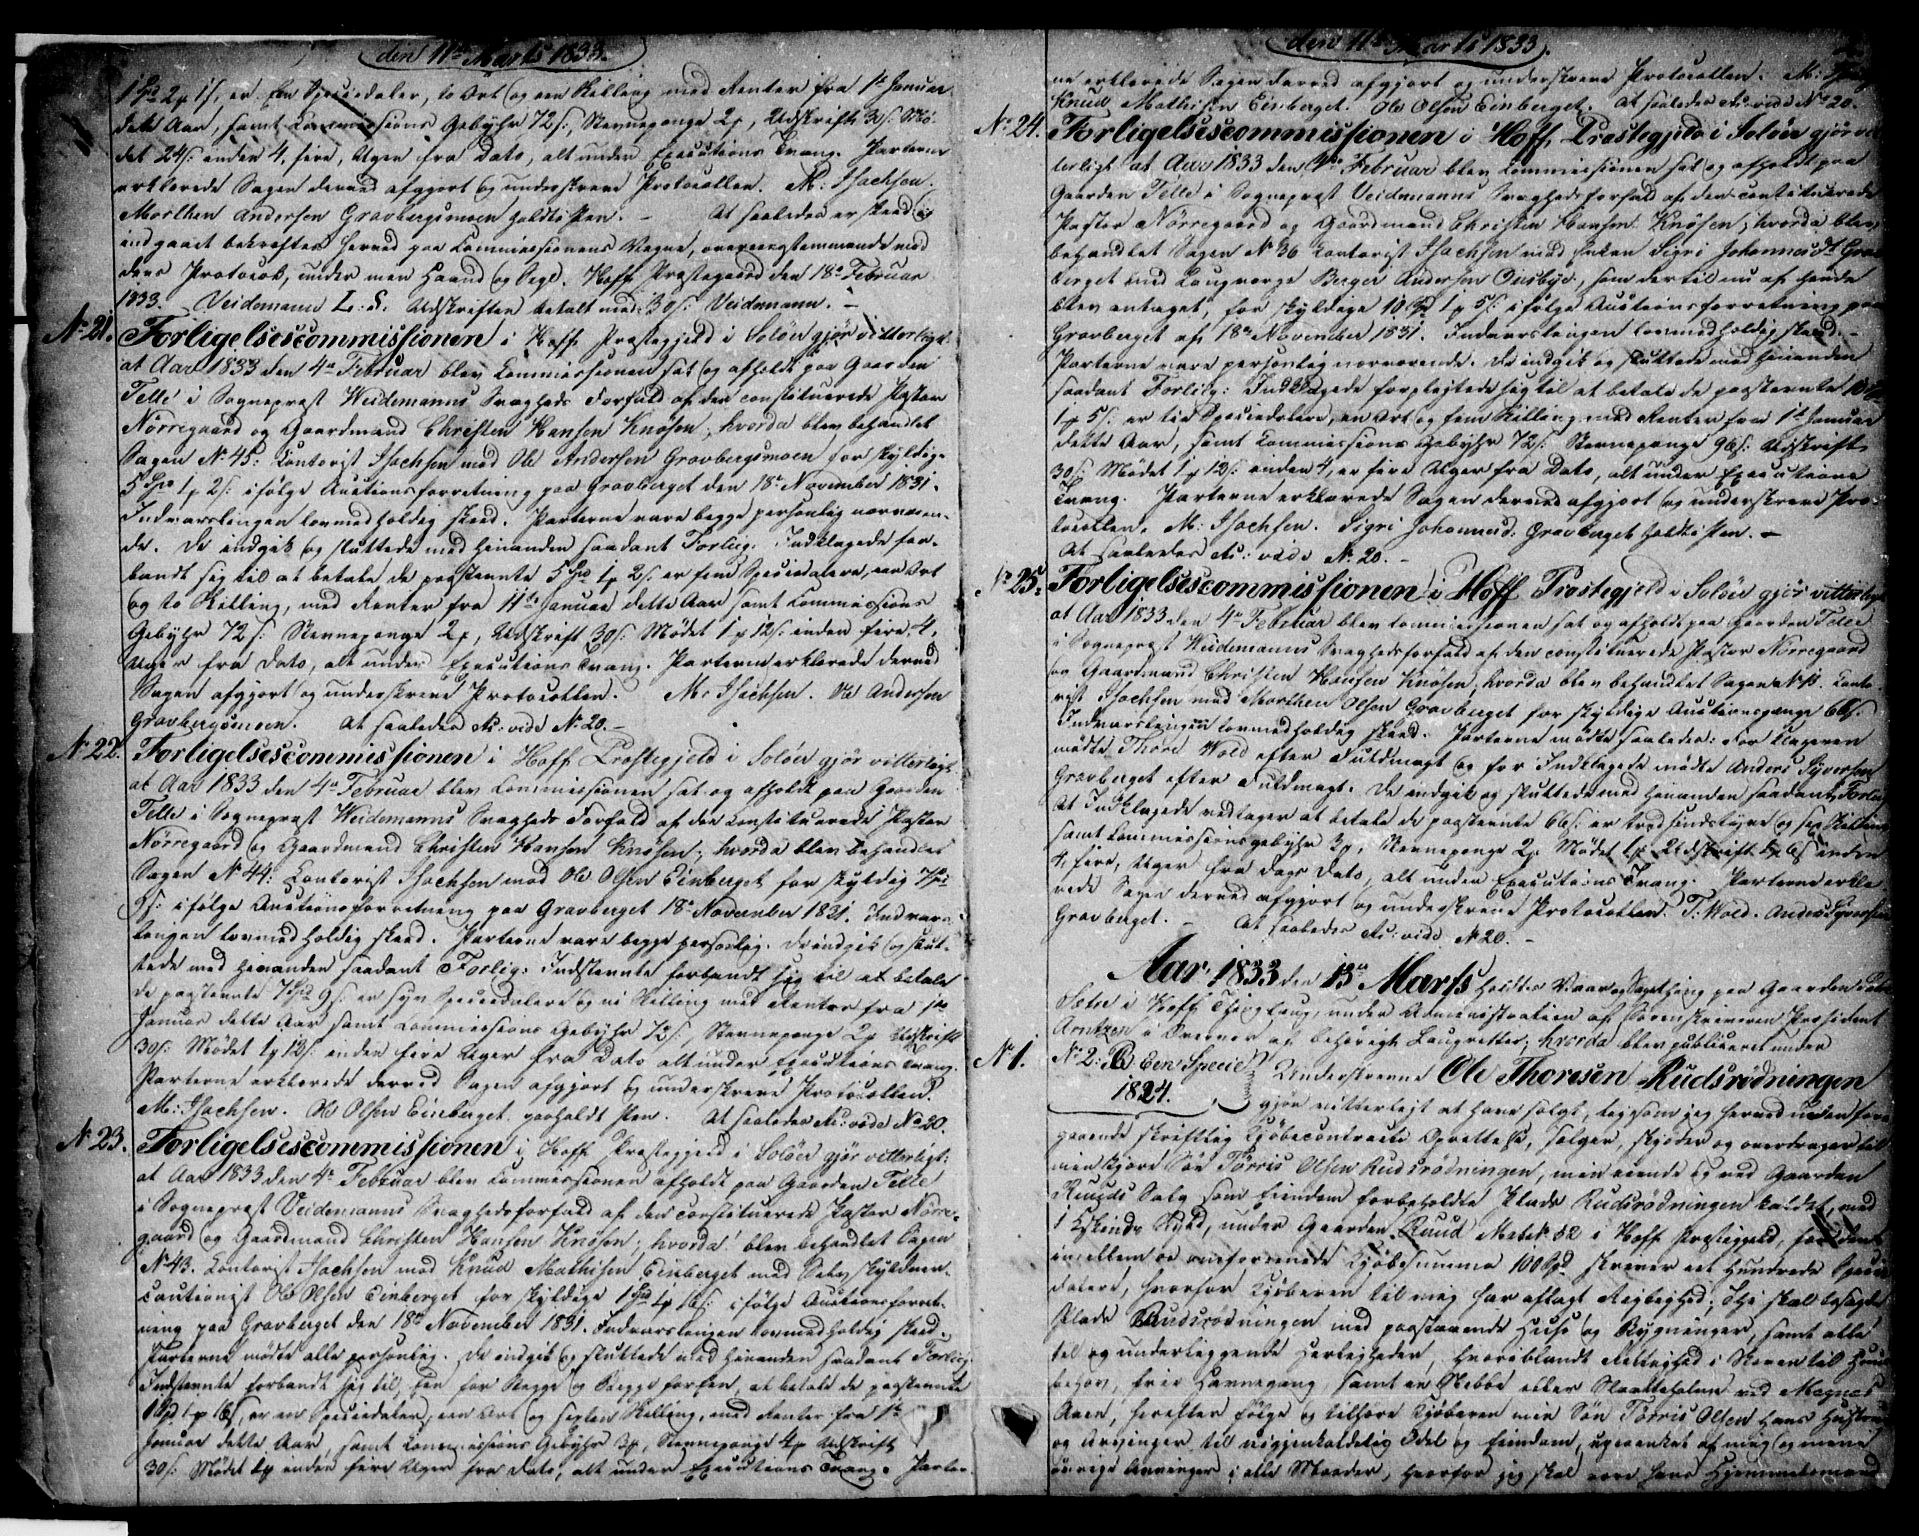 den 11te Marts 1833.
1 Spd 2 1 s, er Een Speciedaler, to Ort og een Skilling med Renter fra 1ste Januar
dette Aar, samt Commissions Gebyhr 72 s, Stevnepenge 2, Udskrift 30 s, Mø-
det 24 s inden 4, fire, Uger fra Dato, alt under Executions Tvang. Parterne
erklærede Sagen derved afgjort og underskrev Protocollen. M: Isachsen.
Morthen Andersen Gravbergsmoen holdt i Pen. – At saaledes er skeed og
indgaaet bekræftes herved paa Commissionens Vegne, overeensstemmende med
dens Protocol, under min Haand og Segl. Hoff Præstegaard den 18de Februar
1833. Veidemann L. S. Udskriften betalt med 30 s. Veidemann. –
No 21. Forligelsescommissionen i Hoff Præstegjeld i Soløer gjør vitterligt:
at Aar 1833 den 4de Februar blev Commissionen sat og afholdt paa Gaarden
Telle i Sognepræst Weidemanns Svagheds Forfald af den constituerede Pastor
Nørregaard og Gaardmand Christen Hansen Knøsen, hvorda blev behandlet
Sagen No 45: Contorist Isachsen mod Ole Andersen Gravbergsmoen for skyldig
5 Spd 1 2 s. ifølge Auctionsforretning paa Gravberget den 18de November 1831.
Indvarslingen lovmedholdig skeed. Parterne vare begge personlig nærværen-
de. De indgik og sluttede med hinanden saadant Forlig: Indklagede for-
bandt sig til at betale de paastevnte 5 Spd 1 2 s. er fem Speciedaler, een Ort
og to Skilling, med Renter fra 11te Januar dette Aar samt Commissions
Gebyhr 72 s: Stevnepenge 2, Udskrift 30 s. Mødet 1 12 s. inden fire, 4,
Uger fra Dato, alt under Executions Tvang. Parterne erklærede derved
Sagen afgjort og underskrev Protocollen. M: Isachsen. Ole Andersen
Gravbergsmoen. At saaledes &c: vide No 20. –
No 22. Forligelsescommissionen i Hoff Præstegjeld i Soløer gjør vitterligt:
at Aar 1833 den 4de Februar blev Commissionen sat og afholdt paa Gaarden
Telle i Sognepræst Weidemanns Svagheds Forfald af den Constituerede Pastor
Nørregaard og Gaardmand Christen Hansen Knøsen, hvorda blev behandlet
Sagen No 44: Contorist Isachsen mod Ole Olsen Einberget for skyldig 7 Spd
9 s. ifølge Auctionsforretning paa Gravberget 18de November 1831. Indvars-
lingen lovmedholdig skeed. Parterne vare begge personlig. De indgik og slut-
tede med hinanden saadant Forlig: Indstevnte forbandt sig til at betale
de paastevnte 7 Spd 9 s. er syv Speciedaler og ni Skilling med Renter fra 1ste
Januar dette Aar samt Commissions Gebyhr 72 s, Stevnepenge 2 Udskrift
30 s. Mødet 1 12 s. inden fire Uger fra Dato alt under Executions Tvang.
Parterne erklærede derved Sagen afgjort og underskrev Protocollen.
M: Isachsen. Ole Olsen Einberget paaholdt Pen. At saaledes &c: vide No 20.
No 23. Forligelsescommissionen i Hoff Præstegjeld i Soløer gjør vitterligt:
at Aar 1833 den 4de Februar blev Commissionen afholdt paa Gaarden Telle
i Sognepræst Veidemanns Svaghedsforfald af den constituerede Pastor Nørre-
gaard og Gaardmand Christen Hansen Knøsen, hvorda blev behandlet Sagen
No 43. Contorist Isachsen mod Knud Mathisen Einberget med Selvskyldner-
cautionist Ole Olsen Einberget for skyldige 1 Spd 1 16 s: ifølge Auctionsforret-
ning paa Gravberget den 18de November 1831. Indvarslingen lovmedholdig skeed.
Parterne mødte alle personlig. De indgik og sluttede med hinanden saadant Forlig:
Indstevnte forbandt sig til, Een for Begge og Begge for Een, at betale de paastevnte
1 Spd 1 16 s, er een Speciedaler, een Ort og sexten Skilling, med Renter fra 1ste
Januar dette Aar, samt Commissions Gebyhr 3, Stevnepenge 4 Udskrift
30 s. Mødet 1 inden fire Uger fra Dato, alt under Executions Tvang. Parter-
den 11te Marts 1833.
ne erklærede Sagen derved afgjort og underskrev Protocollen. M: Isachsen
Knud Mathisen Einberget. Ole Olsen Einberget. At saaledes &c: vide No 20.
No 24. Forligelsescommissionen i Hoff Præstegjeld i Soløer gjør vit-
terligt at Aar 1833 den 4de Februar blev Commissionen sat og afholdt paa
Gaarden Telle i Sognepræst Veidemanns Svaghedsforfald af den constituerede
Pastor Nørregaard og Gaardmand Christen Hansen Knøsen, hvorda blev
behandlet Sagen No 36 Contorist Isachsen mod Enken Sigri Johannesdtr Grav-
berget med Laugværge Berger Andersen Ousbye, som dertil nu af hende
blev antaget, for skyldige 10 Spd 1 5 s. ifølge Auctionsforretning paa
Gravberget af 18de November 1831. Indvarslingen lovmedholdig skeed. –
Parterne vare personlig nærværende. De indgik og sluttede med hinanden
saadant Forlig: Indklagede forpligtede sig til at betale de paastevnte 10 Spd
1 5 s. er tie Speciedaler, en Ort og fem Skilling, med Renter fra 1ste Januar
dette Aar, samt Commissions Gebyhr 72 s. Stevnepenge 96 s. Udskrift
30 s. Mødet 1 12 s: inden 4, er fire Uger fra Dato, alt under Executions
Tvang. Parterne erklærede Sagen derved afgjort og underskrev Pro-
tocollen. M: Isachsen. Sigri Johannesd: Gravberget holdt i Pen. –
At saaledes &c: vide No 20. –
No 25. Forligelsescommissionen i Hoff Præstegjeld i Soløer gjør vitterligt
at Aar 1833 den 4de Februar blev Commissionen sat og afholdt paa Gaarden Telle
i Sognepræst Weidemanns Svaghedsforfald af den constituerede Pastor Nørregaard
og Gaardmand Christen Hansen Knøsen, hvorda blev behandlet Sagen No 13. Conto-
rist Isachsen mod Morthen Olsen Gravberget for skyldige Auctionspenge 66 s.
Indvarslingen lovmedholdig skeed. Parterne mødte saaledes: For Klageren
mødte Thore Wold efter Fuldmagt og for Indklagede mødte Anders Syversen
Gravberget efter Fuldmagt. De indgik og sluttede med hinanden saadant Forlig
At Indklagede vedtager at betale de paastevnte 66 s. er tredsindstyve og sex Skilling
samt Commissionsgebyhr 3, Stevnepenge 2, Mødet 1 Udskrift inden
4, fire, Uger fra Dags Dato, alt under Executions Tvang. Parterne erklæ-
rede Sagen derved afgjort og underskrev Protocollen. T. Wold. Anders Syversen
Gravberget. – At saaledes &c: vide No 20. –
Aar 1833 den 13de Marts holdtes Vaar og Sagething paa Gaarden
Sætre i Hoff Thinglaug, under Administration af Sorenskriveren President
Arntzen i Overvær af behørigt Laugretter; hvorda blev publiceret under
No 1. No 2: B Een Specie
1824.
Underskrevne Ole Thoresen Rudsrødningen
gjør vitterligt at have solgt, ligesom jeg herved uden fore-
gaaende skriftlig Kjøbecontracts Oprettelse, sælger, skjøder og overdrager til
min kjære Søn Tørris Olsen Rudsrødningen, min eiende og ved Gaarden
Ruuds Salg som Eiendom forbeholdte Plads Rudsrødningen kaldet, med
1 Skinds Skyld, under Gaarden Ruud Matr. No 52 i Hoff Præstegjeld, for den
imellem os omforenede Kjøbesumma 100 Spd skriver eet Hundrede Specie-
daler, hvorfor Kjøberen til mig har aflagt Rigtighed; Thi skal besagte
Plads Rudsrødningen med paastaaende Huse og Bygninger, samt alle
til og underliggende Herligheder, hvoriblandt Rettighed i Skoven til Huus-
behov, frie Havnegang, samt en Slaatteholm ved Magnæs
Aaen, herefter følge og tilhøre Kjøberen min Søn Tørris Olsen hans Hustrue
og Arvinger til uigjenkaldelig Odel og Eiendom, upaaanket af mig og mine
øvrige Arvinger i alle Maader, hvorfor jeg skal være hans Hjemmelsmand